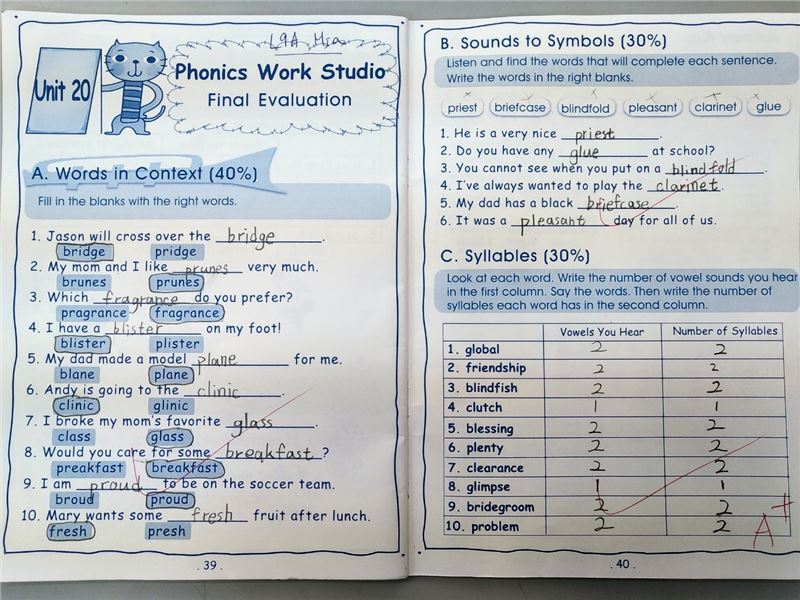 L9A Mia
Unit 20
Phonics Work Studio
Final Evaluation
A. Words in Context (40%)
Fill in the blanks with the right words.
1. Jason will cross over the bridge.
bridge pridge
2. My mom and I like prunes very much.
brunes prunes
3. Which fragrance do you prefer?
pragrance fragrance
4. I have a blister on my foot!
blister plister
5. My dad made a model plane for me.
blane plane
6. Andy is going to the clinic.
clinic glinic
7. I broke my mom's favorite glass.
class glass
8. Would you care for some breakfast?
preakfast breakfast
9. I am proud to be on the soccer team.
broud proud
10. Mary wants some fresh fruit after lunch.
fresh presh
. 39 .
B. Sounds to Symbols (30%)
Listen and find the words that will complete each sentence.
Write the words in the right blanks.
priest briefcase blindfold pleasant clarinet glue
1. He is a very nice priest.
2. Do you have any glue at school?
3. You cannot see when you put on a blindfold.
4. I've always wanted to play the clarinet.
5. My dad has a black briefcase.
6. It was a pleasant day for all of us.
C. Syllables (30%)
Look at each word. Write the number of vowel sounds you hear
in the first column. Say the words. Then write the number of
syllables each word has in the second column.
Vowels You Hear Number of Syllables
1. global 2 2
2. friendship 2 2
3. blindfish 2 2
4. clutch 1 1
5. blessing 2 2
6. plenty 2 2
7. clearance 2 2
8. glimpse 1 1
9. bridegroom 2 2
10. problem 2 2
A+
. 40 .